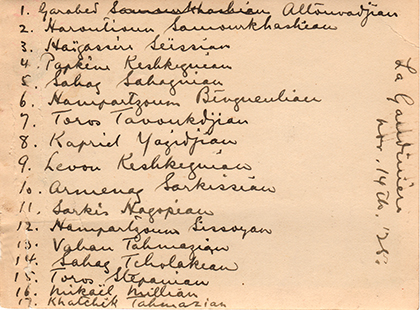 1. Garabed Samourkhashian Altounvadjian
2. Haroutioun Samourkhashian
3. Haïgasser Seïssian
4 Papkèn Keshkegnian
5. Sahag Sahaguian
6. Hampartzoum Bingueulian
7. Toros Tavoukdjian
8 Kapriel Yazidjian
9. Levon Keshkegnian
10. Armenag Sarkissian
11. Sarkis Hagopian
12. Hampartzoum Sissoyan
13. Vahan Tahmazian
14. Sahag Tcholakean
15. Toros Stepanian
16. Mikaël Millian
17. Khatchik Tahmazian
La
Nov. 14th. '25.